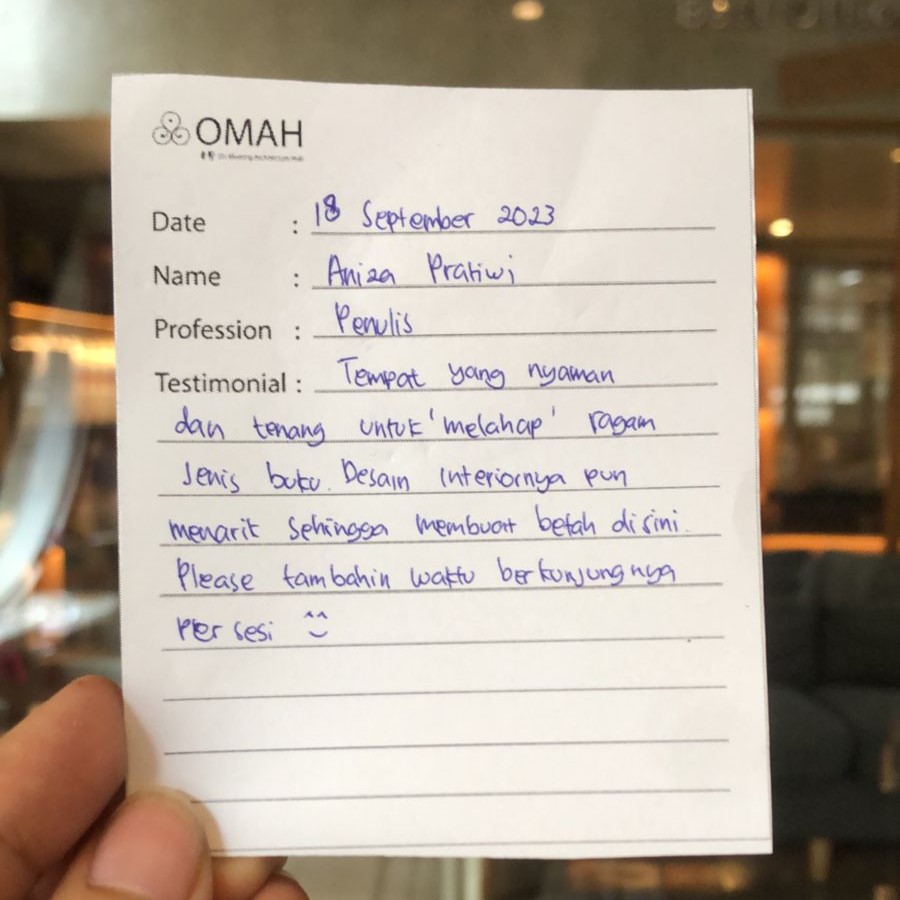 OMAH
Date : 18 September 2023
Name : Aniza Pratiwi
Profession : Penulis
Testimonial : Tempat yang nyaman
dan tenang untuk 'melahap' ragam
jenis buku. Desain interiornya pun
menarik sehingga membuat betah disini.
Please tambahin waktu berkunjungnya
per sesi ^^